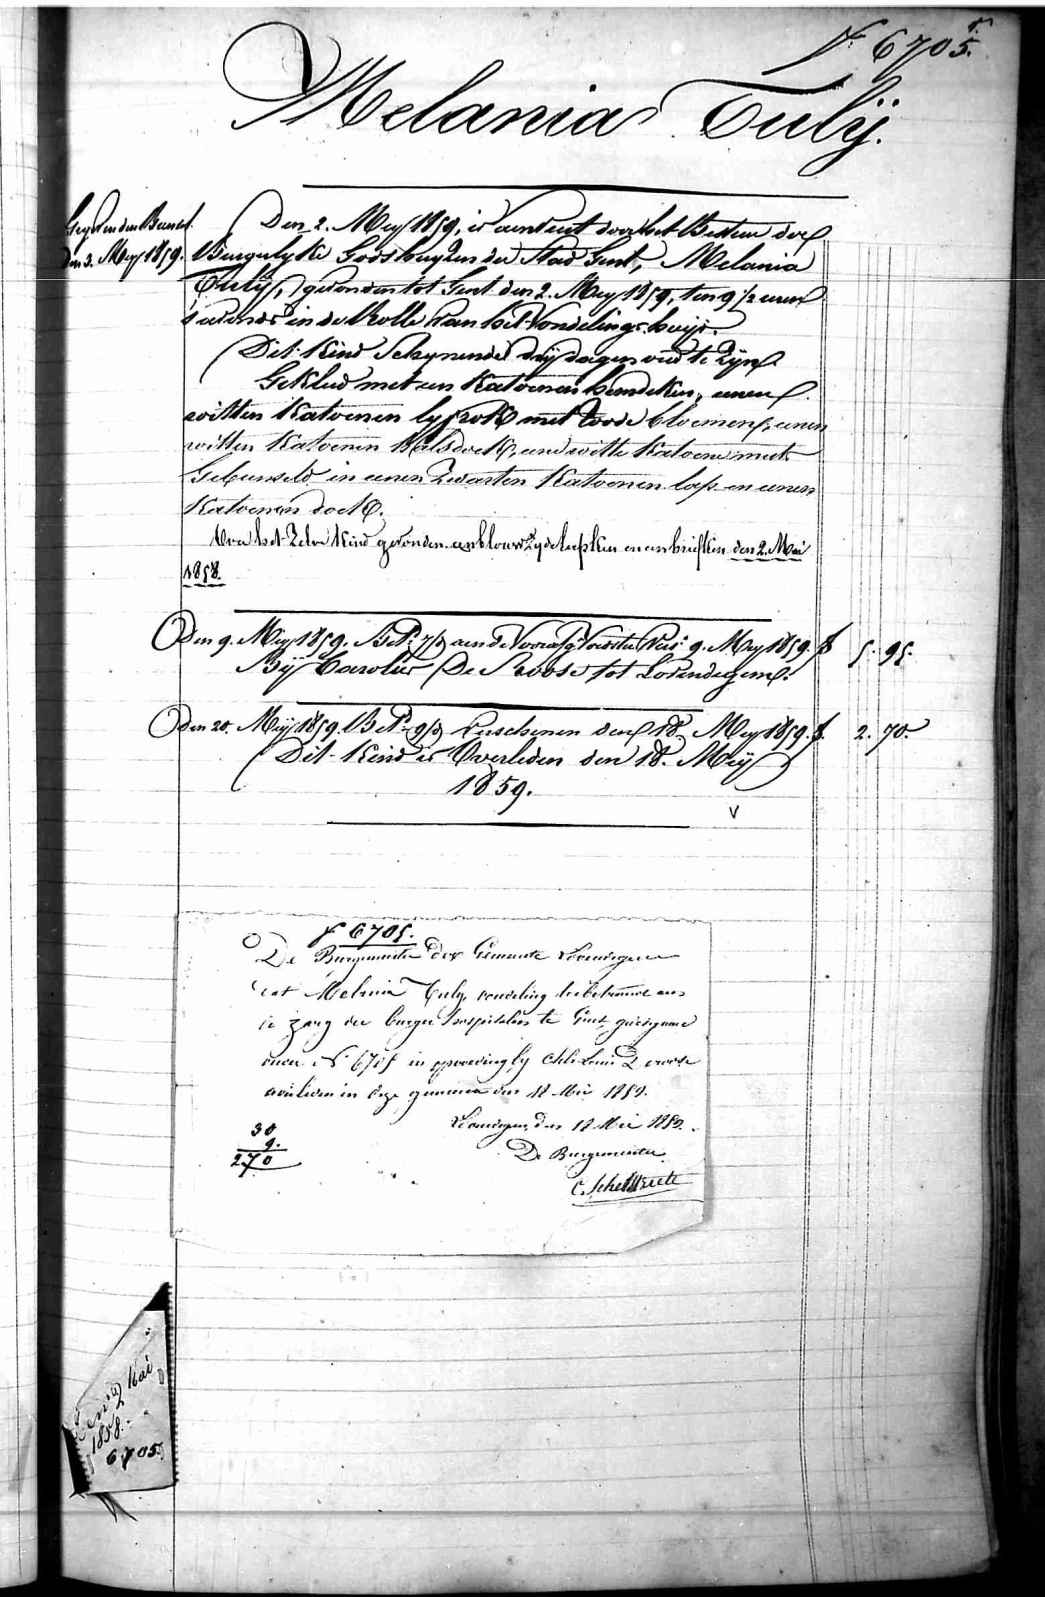 N.º 6705.
Melania Tuly.
Den 2. Mey 1859, is aenveert door het Bestuer der
den 3. Mey 1859. Burgerlyke Godshuyzen der Stad Gent, Melania
Tuly, gevonden tot Gent den 2. Mey 1859, ten 9 1/2 uren
s'avonds in de Rolle van het Vondelingshuys.
Dit Kind Schynende dry dagen oud te zyn.
Gekleed met een Katoenen hemdeken, eenen
witten Katoenen lyfrok met roode bloemen, eenen
witten Katoenen Halsdoek, eene witte Katoene muts
Gebunseld in eenen Zwarten Katoenen lap en eenen
Katoenen doek.
het Zelve Kind gevonden een blauw Zyde lapken en een briefken den 2. Mei
1858.
Den 9. Mey 1859. Bet. aen de 9. Mey 1859. f 5. 95.
By Carolus De Roose tot Lovendegem.
Den 20. Mey 1859. Bet. Verschenen den 18. Mey 1859. f. 2. 70.
Dit Kind is Overleden den 18. Mey
1859.
V
N 6705.
De Burgemeester der Gemeente
dat Melania Tuly, vondeling toebetrouwd aen
de zorg der burger hospitalen te Gent
onder N.º 6705 in
overleden in deze gemeente den 18 Mei 1859.
den 18 Mei 1859.
30
9.
270
De Burgemeester
2 Mai
1858.
6705.